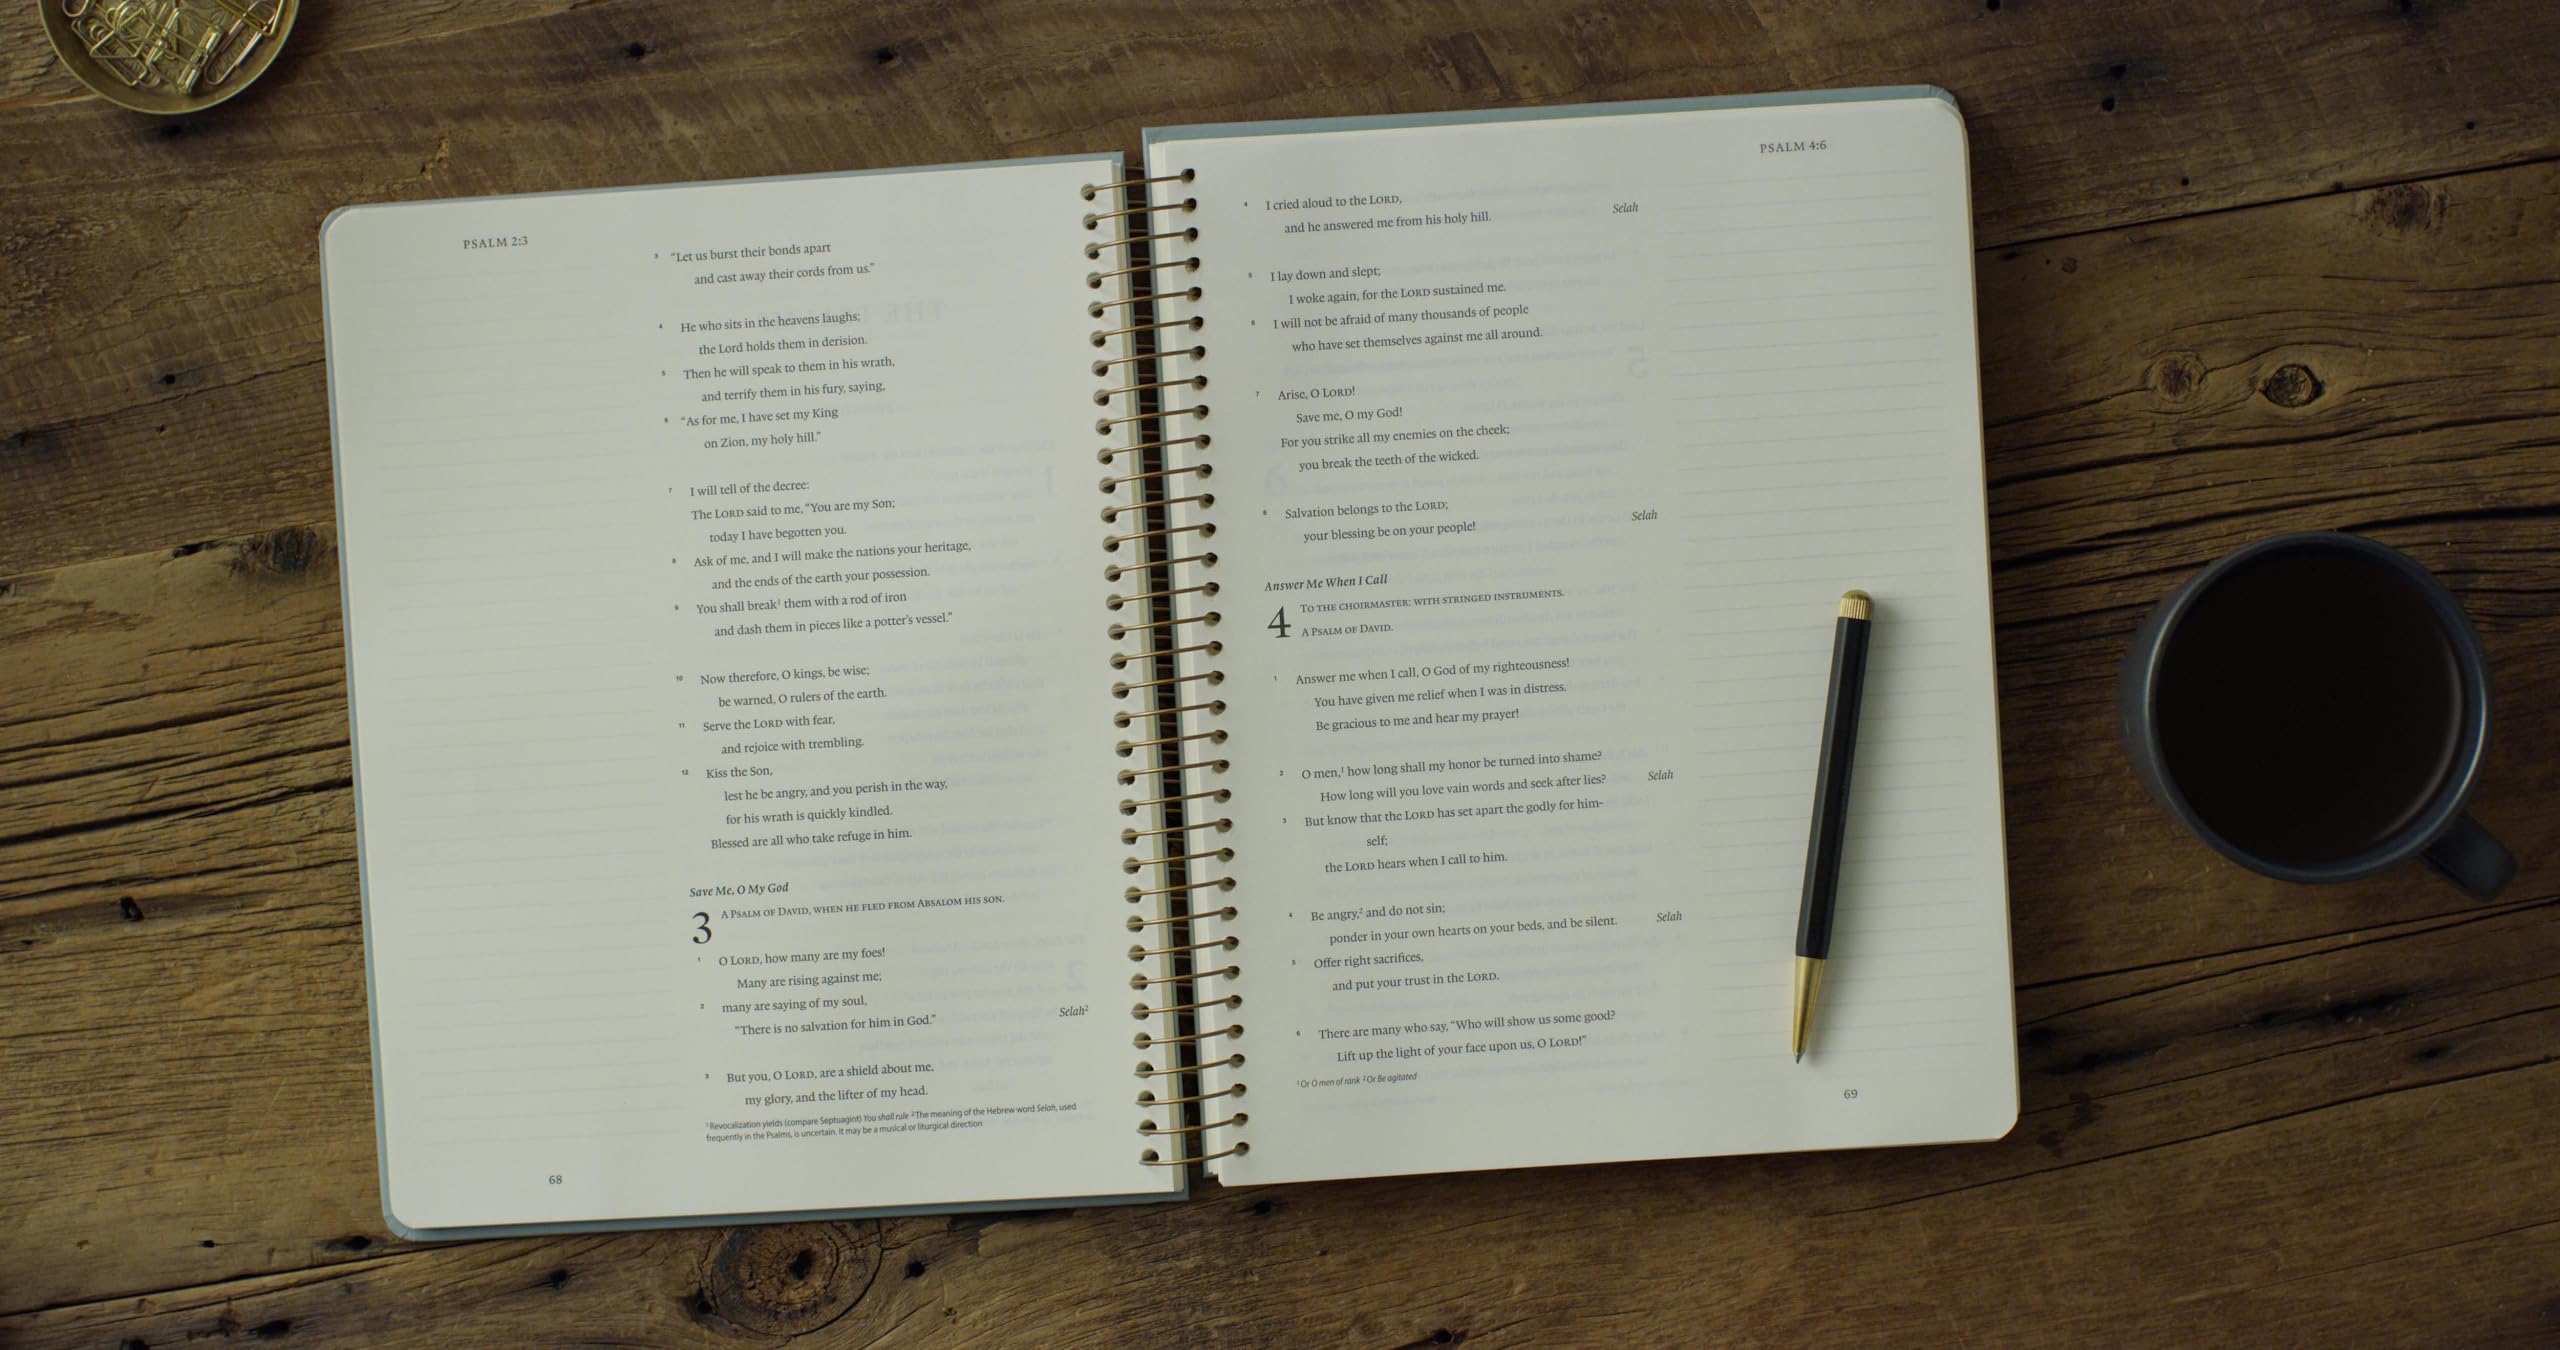 PSALM 2:3
3 “Let us burst their bonds apart
and cast away their cords from us.”
4 He who sits in the heavens laughs;
the Lord holds them in derision.
5 Then he will speak to them in his wrath,
and terrify them in his fury, saying,
6 “As for me, I have set my King
on Zion, my holy hill.”
7 I will tell of the decree:
The LORD said to me, “You are my Son;
today I have begotten you.
8 Ask of me, and I will make the nations your heritage,
and the ends of the earth your possession.
9 You shall break¹ them with a rod of iron
and dash them in pieces like a potter’s vessel.”
10 Now therefore, O kings, be wise;
be warned, O rulers of the earth.
11 Serve the LORD with fear,
and rejoice with trembling.
12 Kiss the Son,
lest he be angry, and you perish in the way,
for his wrath is quickly kindled.
Blessed are all who take refuge in him.
Save Me, O My God
3 A PSALM OF DAVID, WHEN HE FLED FROM ABSALOM HIS SON.
1 O LORD, how many are my foes!
Many are rising against me;
2 many are saying of my soul,
“There is no salvation for him in God.” Selah²
3 But you, O LORD, are a shield about me,
my glory, and the lifter of my head.
¹ Revocalization yields (compare Septuagint) You shall rule ² The meaning of the Hebrew word Selah, used
frequently in the Psalms, is uncertain. It may be a musical or liturgical direction
68
PSALM 4:6
4 I cried aloud to the LORD,
and he answered me from his holy hill. Selah
5 I lay down and slept;
I woke again, for the LORD sustained me.
6 I will not be afraid of many thousands of people
who have set themselves against me all around.
7 Arise, O LORD!
Save me, O my God!
For you strike all my enemies on the cheek;
you break the teeth of the wicked.
8 Salvation belongs to the LORD;
your blessing be on your people! Selah
Answer Me When I Call
4 TO THE CHOIRMASTER: WITH STRINGED INSTRUMENTS.
A PSALM OF DAVID.
1 Answer me when I call, O God of my righteousness!
You have given me relief when I was in distress.
Be gracious to me and hear my prayer!
2 O men,¹ how long shall my honor be turned into shame?
How long will you love vain words and seek after lies? Selah
3 But know that the LORD has set apart the godly for him-
self;
the LORD hears when I call to him.
4 Be angry,² and do not sin;
ponder in your own hearts on your beds, and be silent. Selah
5 Offer right sacrifices,
and put your trust in the LORD.
6 There are many who say, “Who will show us some good?
Lift up the light of your face upon us, O LORD!”
¹ Or O men of rank ² Or Be agitated
69